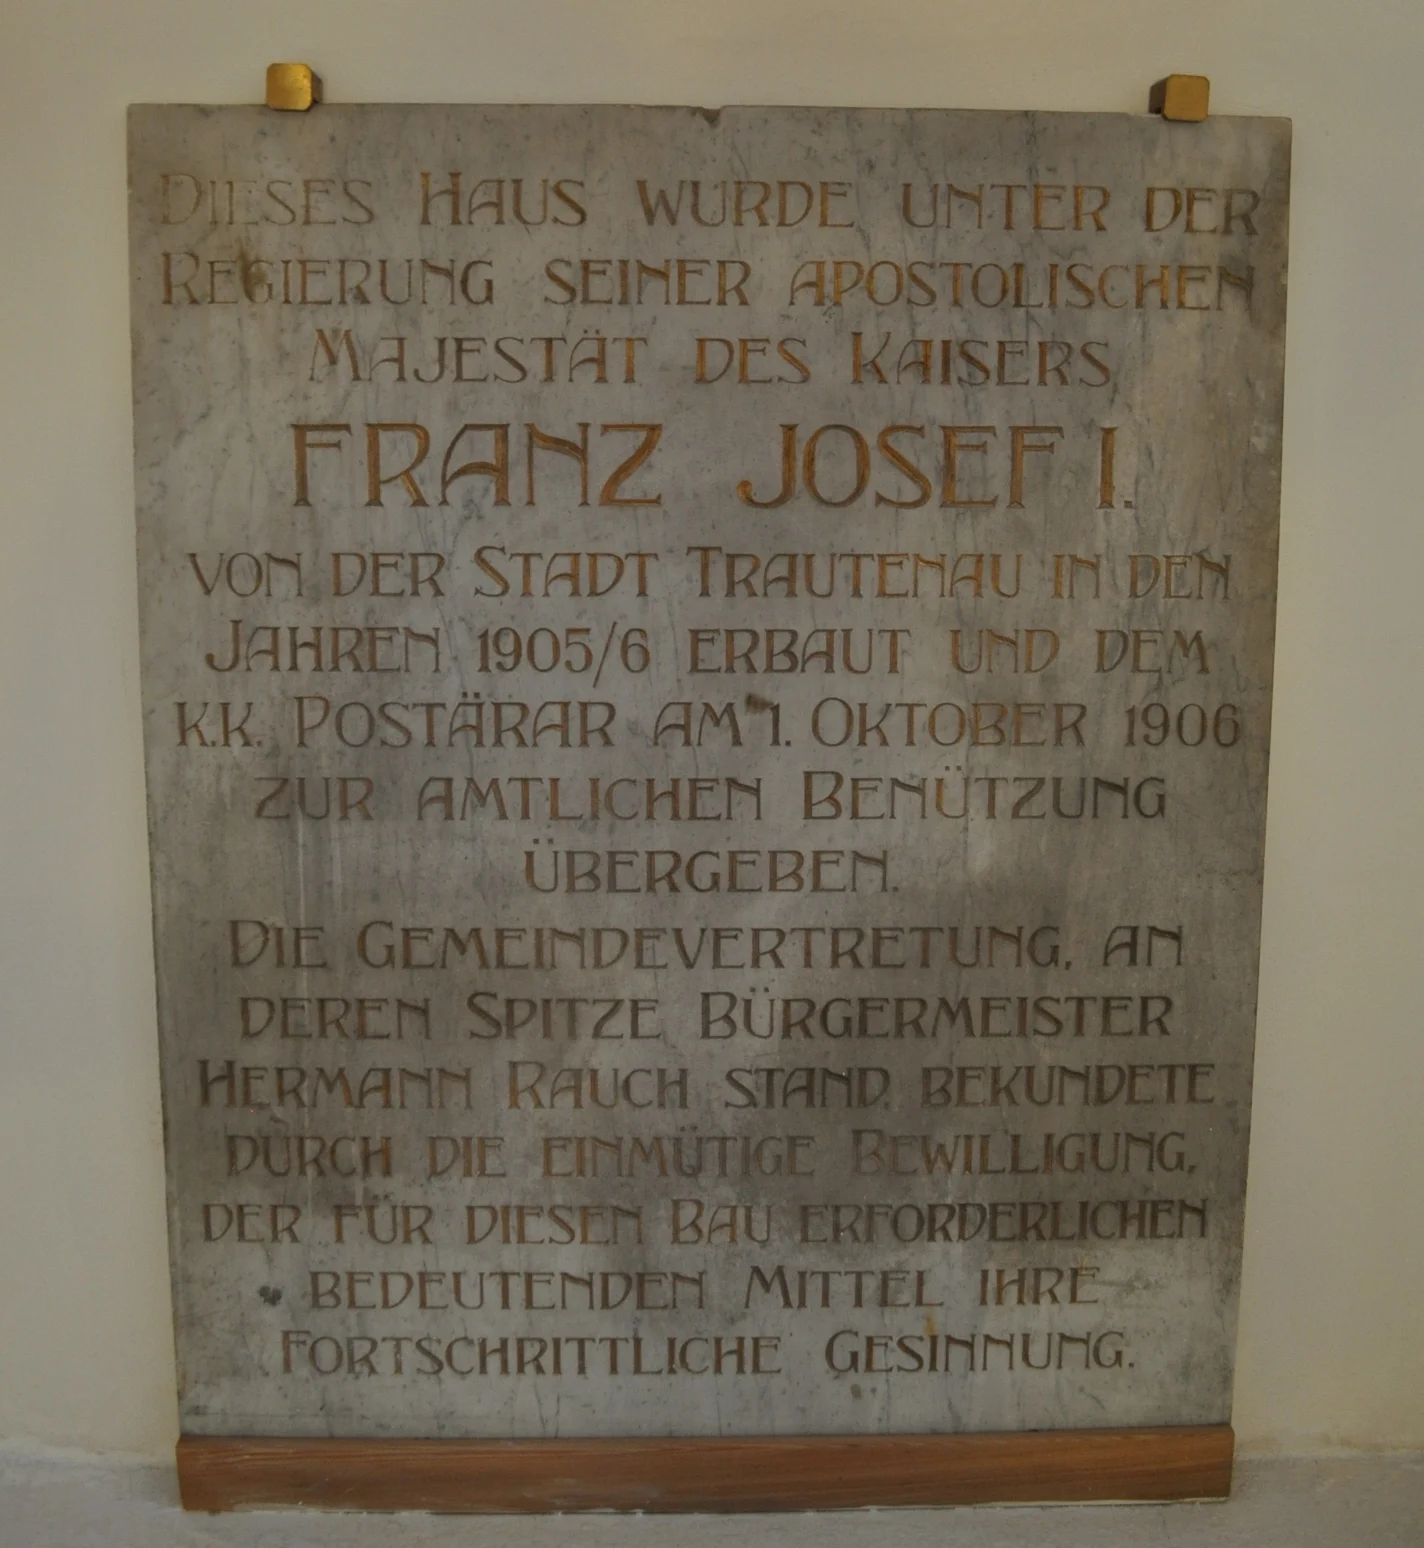 Dieses Haus wurde unter der
Regierung seiner apostolischen
Majestät des Kaisers
FRANZ JOSEF I.
von der Stadt Trautenau in den
Jahren 1905/6 erbaut und dem
k.k. Postärar am 1. Oktober 1906
zur amtlichen Benützung
übergeben.
Die Gemeindevertretung, an
deren Spitze Bürgermeister
Hermann Rauch stand, bekundete
durch die einmütige Bewilligung,
der für diesen Bau erforderlichen
bedeutenden Mittel ihre
fortschrittliche Gesinnung.